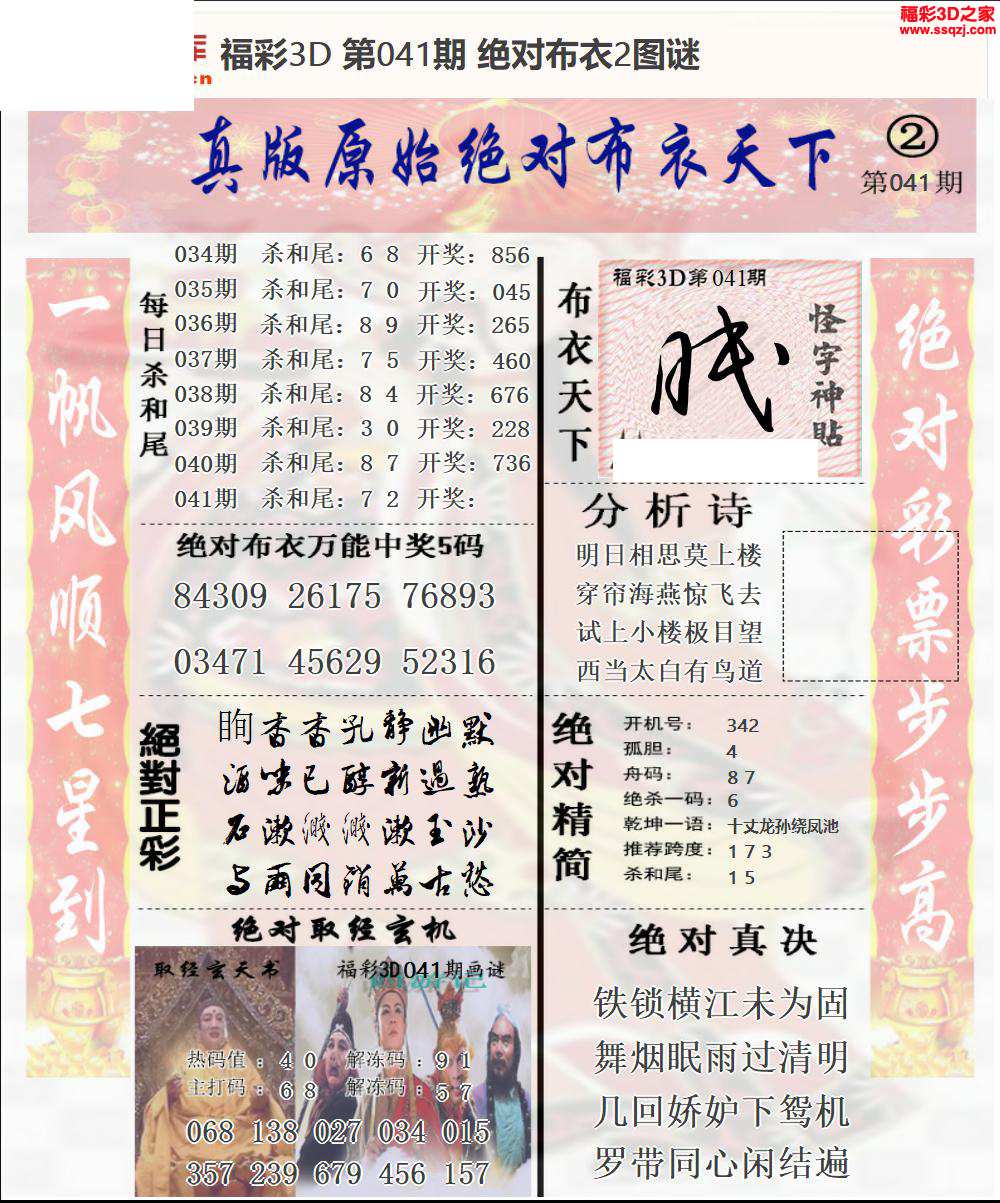 福彩3D之家
www.ssqzj.com
福彩3D 第041期 绝对布衣2图谜
真版原始绝对布衣天下
②
第041期
一帆风顺七星到
每日杀和尾
034期 杀和尾：6 8 开奖：856
035期 杀和尾：7 0 开奖：045
036期 杀和尾：8 9 开奖：265
037期 杀和尾：7 5 开奖：460
038期 杀和尾：8 4 开奖：676
039期 杀和尾：3 0 开奖：228
040期 杀和尾：8 7 开奖：736
041期 杀和尾：7 2 开奖：
绝对布衣万能中奖5码
84309 26175 76893
03471 45629 52316
絕對正彩
香香孔静幽默
酒味已醇新過熟
石漱溅溅漱玉沙
与爾同销萬古愁
绝对取经玄机
取经玄天书
福彩3D041期画谜
热码值：4 0 解冻码：9 1
主打码：6 8 解冻码：5 7
068 138 027 034 015
357 239 679 456 157
布衣天下
福彩3D第041期
怪字神贴
分析诗
明日相思莫上楼
穿帘海燕惊飞去
试上小楼极目望
西当太白有鸟道
绝对精简
开机号： 342
孤胆： 4
舟码： 8 7
绝杀一码： 6
乾坤一语： 十丈龙孙绕凤池
推荐跨度： 1 7 3
杀和尾： 1 5
绝对真决
铁锁横江未为固
舞烟眠雨过清明
几回娇妒下鸳机
罗带同心闲结遍
绝对彩票步步高